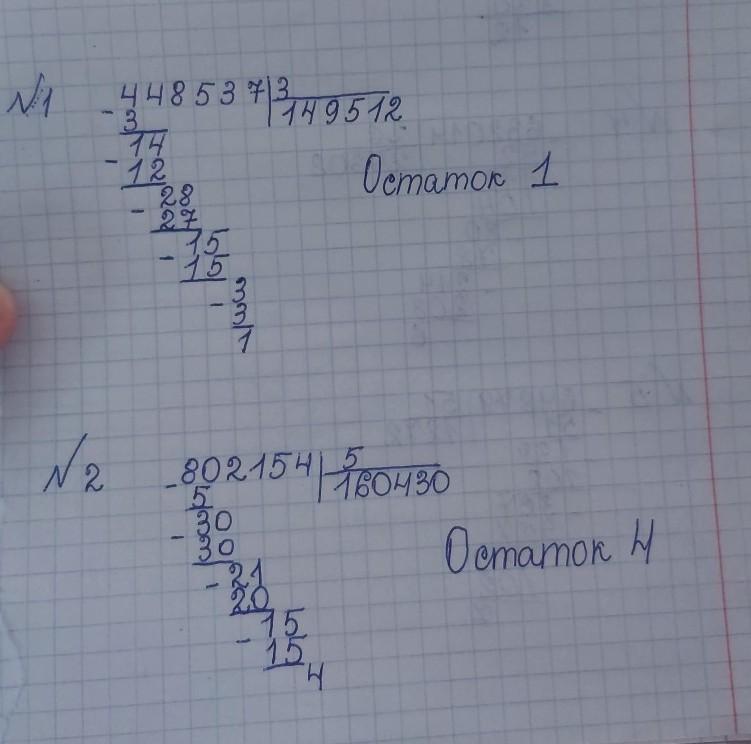 №1 -448537|3
3 149512
14
-12 Остаток 1
28
-27
15
-15
3
-3
1
№2 -802154|5
5 160430
30
-30 Остаток 4
21
-20
15
-15
4